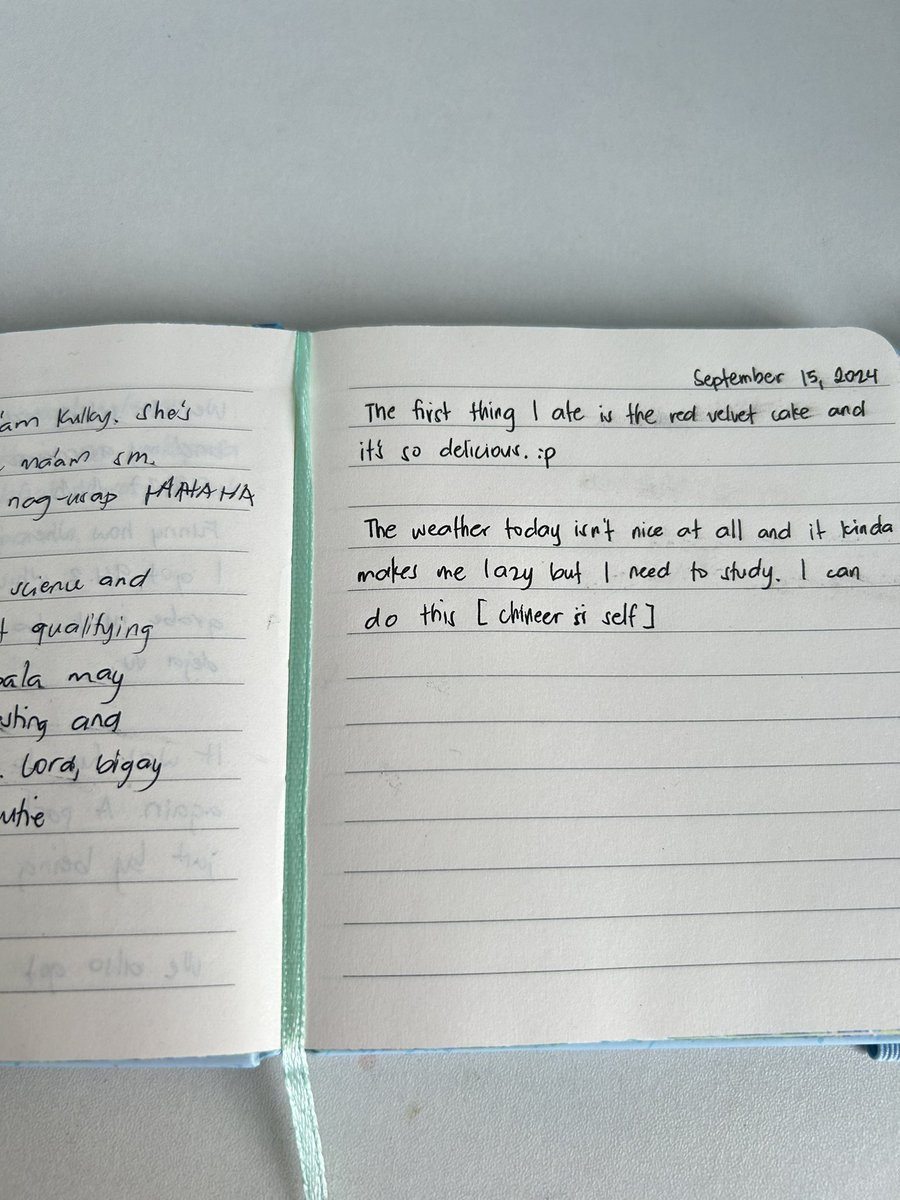 'am Kulky. She's
ma'am sm.
nag-usap HAHAHA
science and
qualifying
may
and
. Lord, bigay
September 15, 2024
The first thing I ate is the red velvet cake and
it's so delicious. :p
The weather today isn't nice at all and it kinda
makes me lazy but I need to study. I can
do this [ self ]